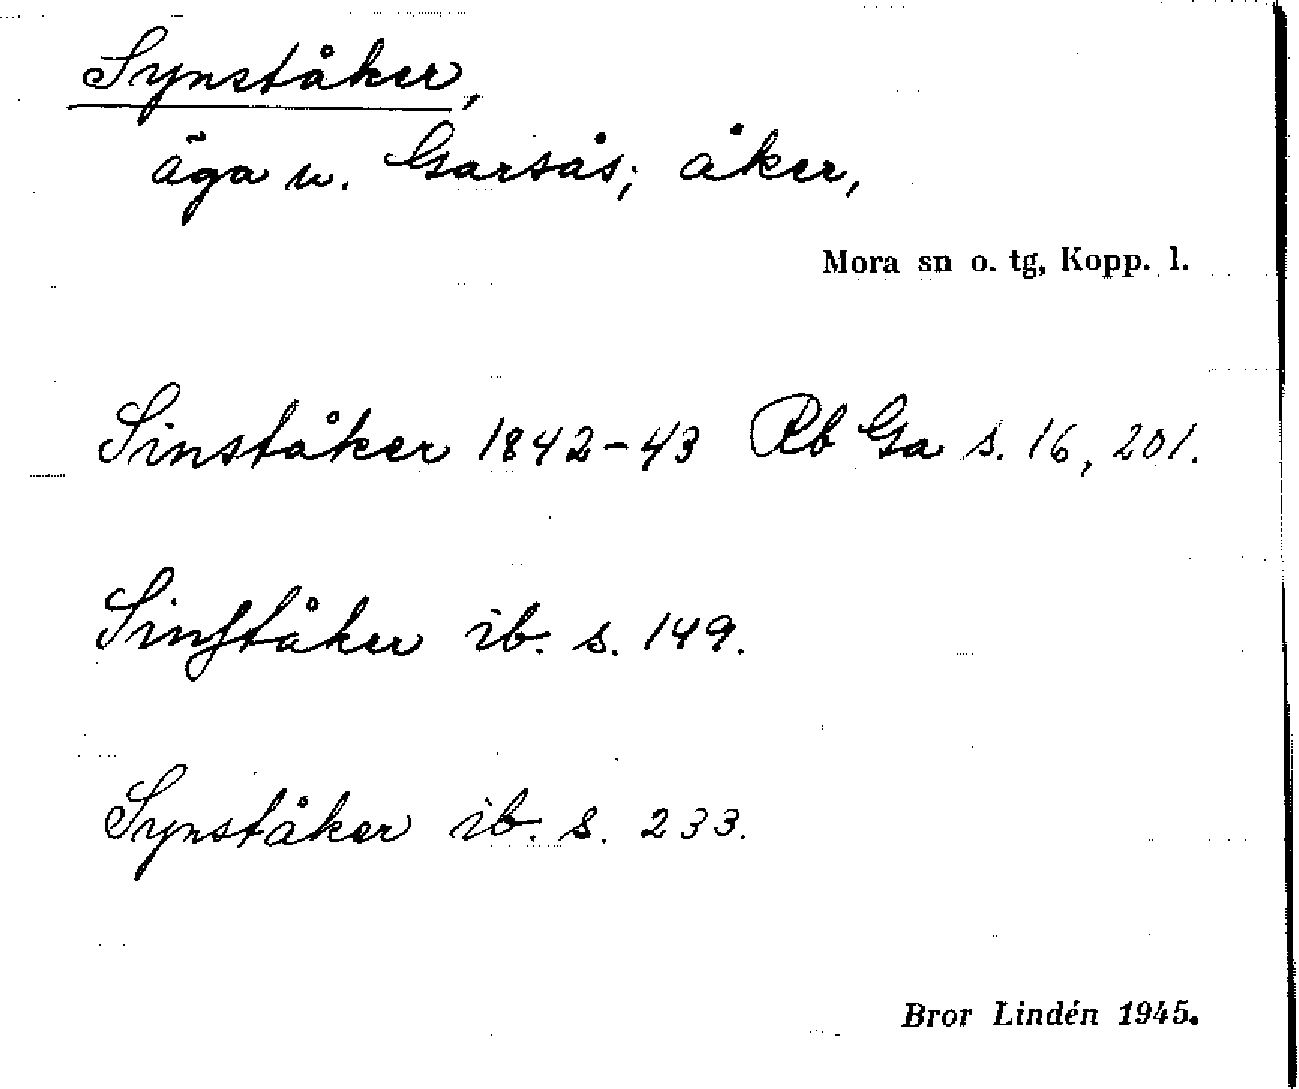 Synståker,
äga u. Garsås; åker,
Mora sn o. tg, Kopp. l.
Sinståker 1842-43 Rb Ga s. 16, 201.
Sinſtåker ib. s. 149.
Synståker ib. s. 233.
Bror Lindén 1945.